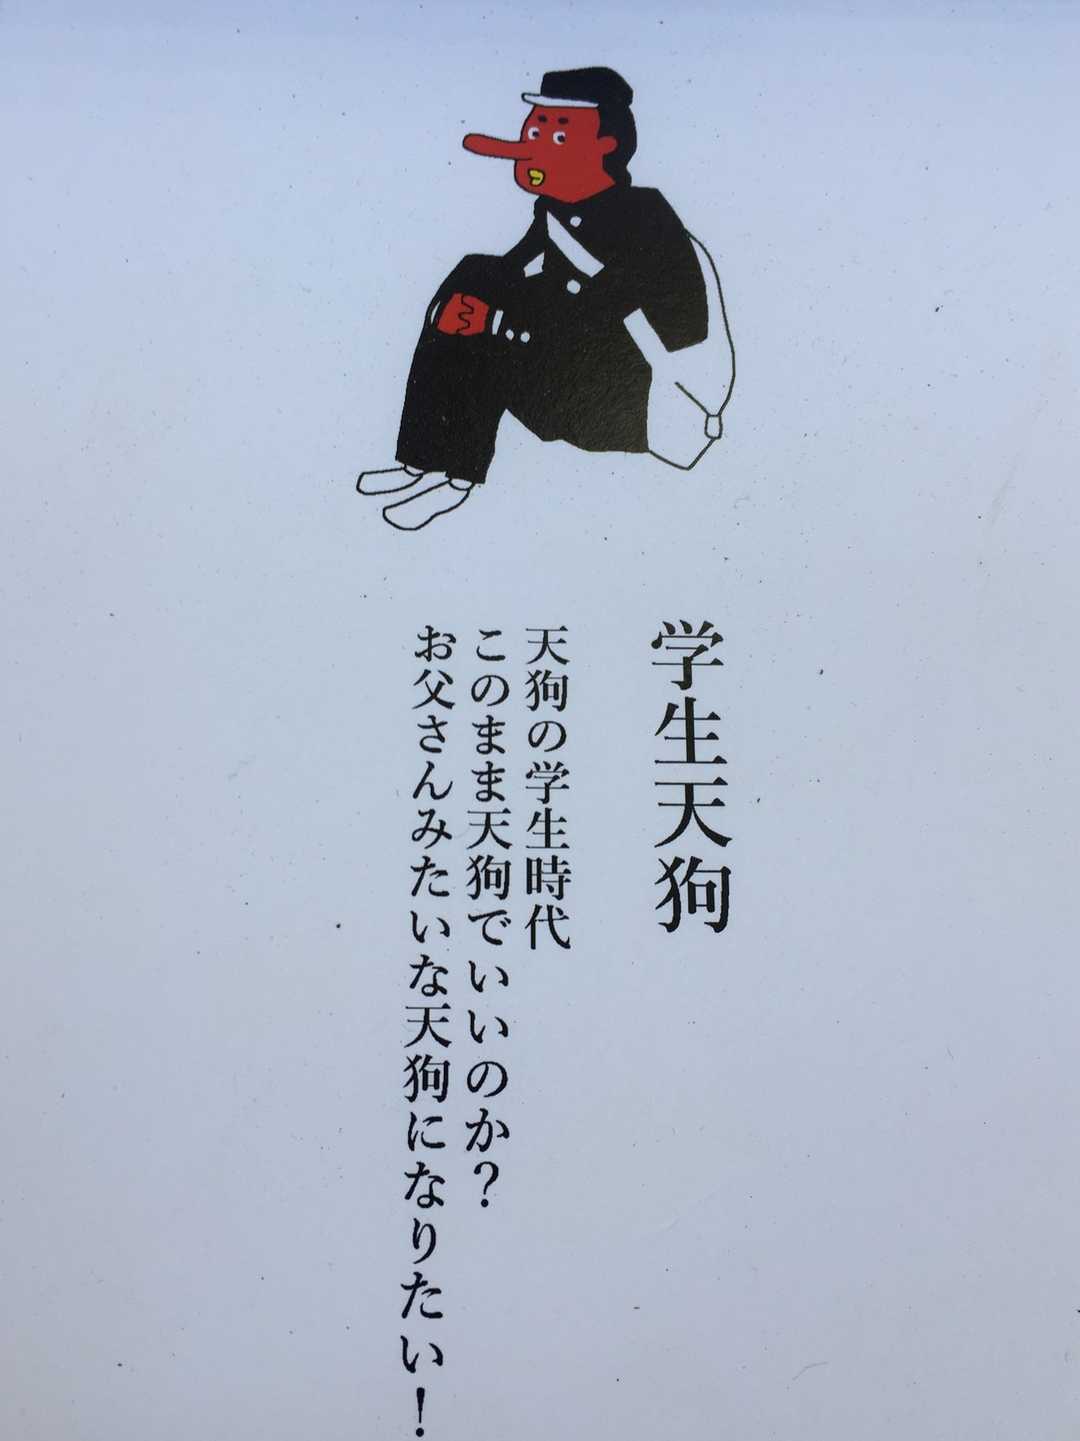 学生天狗
天狗の学生時代
このまま天狗でいいのか？
お父さんみたいな天狗になりたい！